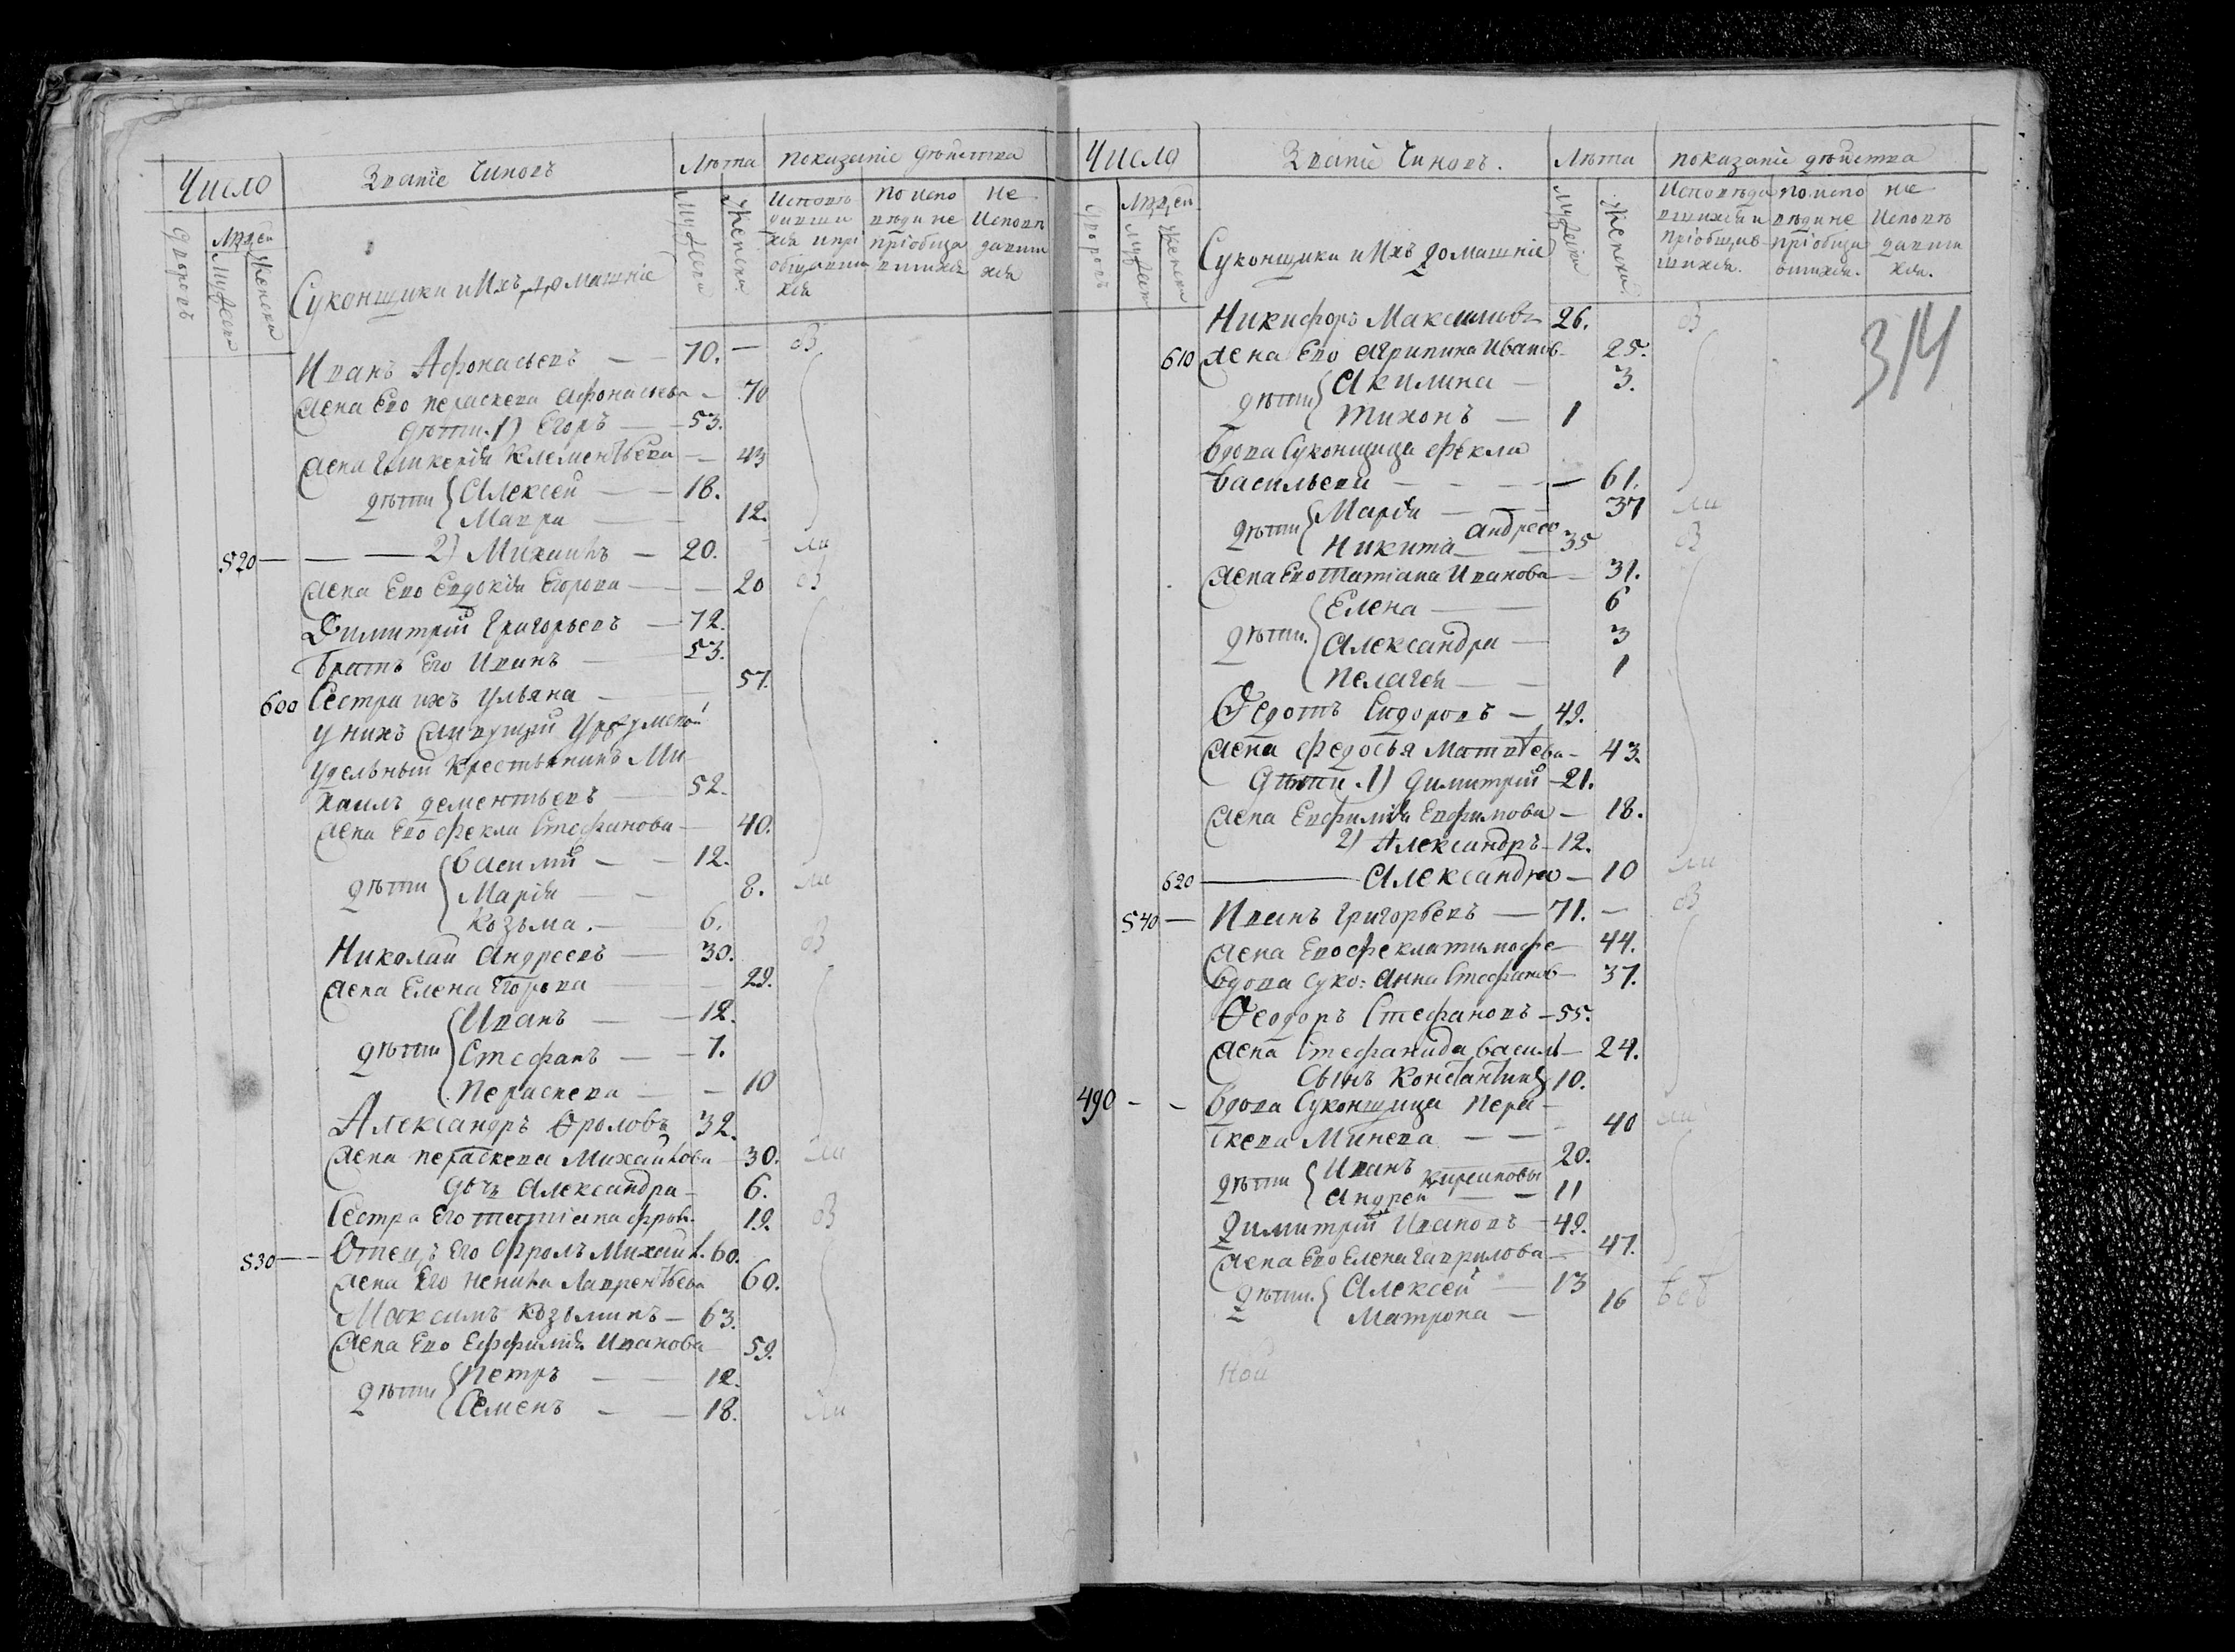 Число
Званіе Чиновъ
Лѣта
показаніе дѣйства
Дворовъ
Людей
Мужеска
Женска
Суконщики и Ихъ домашніе
Мужеска
Женска
Исповѣ
давши
хся и прі
общавши
хся
по испо
вѣди не
пріобща
вшихся
не
Исповѣ
давши
хся
Иванъ Афонасьевъ — 70. — в
жена Его пераскева Афонасьева — 70
дѣти. 1) Егоръ — 53.
жена Гликерія Клементьева — 43
дѣти Алексей — 18.
Мавра — 12.
520 — 2) Михаилъ — 20. ли
жена Его Евдокія Егорова — 20 в
Димитрій Григорьевъ — 72.
братъ Его Иванъ — 53.
600 Сестра ихъ Ульяна — 57.
у нихъ Живущій
Удельный Крестьянинъ Ми
хаилъ дементьевъ — 52.
жена Его Фекла Стефанова — 40.
дѣти Василій — 12.
Марія — 8. ли
Козьма. — 6.
Николай Андреевъ — 30. в
жена Елена Егорова — 29.
дѣти Иванъ — 12.
Стефанъ — 7.
Пераскева — 10
Александръ Ѳроловъ 32.
жена пераскева Михаилова — 30. ли
дочь Александра — 6.
Сестра Его татіана фров. 19. в
530 — Отецъ Его Фролъ Михаил. 60.
жена Его Ненила Лаврентьева 60.
Максимъ Козьминъ — 63.
жена Его Ефимія Иванова 59.
дѣти Петръ — 12.
Семенъ — 18. ли
Число
Званіе Чиновъ.
Лѣта
показаніе дѣйства
Дворовъ
Людей
Мужеска
Женска
Суконщики и Ихъ домашніе
Мужеска
Женска.
Исповѣда
вшихся и
пріобщив
шихся.
по испо
вѣди не
пріобща
вшихся.
не
Исповѣ
давши
хся.
314
Никифоръ Максимовъ 26. в
610 жена Его Агрипина Иванов. 25.
дѣти Акилина — 3.
Тихонъ — 1
вдова Суконщица Фекла
Васильева — 61.
дѣти Марія — 37 ли
Андрее
Никита — 35 в
жена Его Татіана Иванова — 31.
дѣти. Елена — 6
Александра — 3
Пелагея — 1
Ѳедотъ Сидоровъ — 49.
жена Федосья Матвеева — 43.
Дѣти. 1) Димитрій — 21.
жена Евфимія Евфимова — 18.
2) Александръ — 12.
620 — Александра — 10 ли
540 — Иванъ Григорьевъ — 71. — в
жена Его Фекла тимофе — 44.
Вдова Суко: Анна Стефанов — 37.
Ѳеодоръ Стефановъ — 55.
жена Стефанида Васил — 29.
Сынъ Константинъ 10.
490 — — Вдова Суконщица Пера —
скева Минева — — 40 ли
дѣти Иванъ 20.
Кирсановы
Андрей — 11
Димитрій Ивановъ — 49.
жена Его Елена Гаврилова — 47.
Дѣти. Алексей — 13
Матрона — 16
Ной